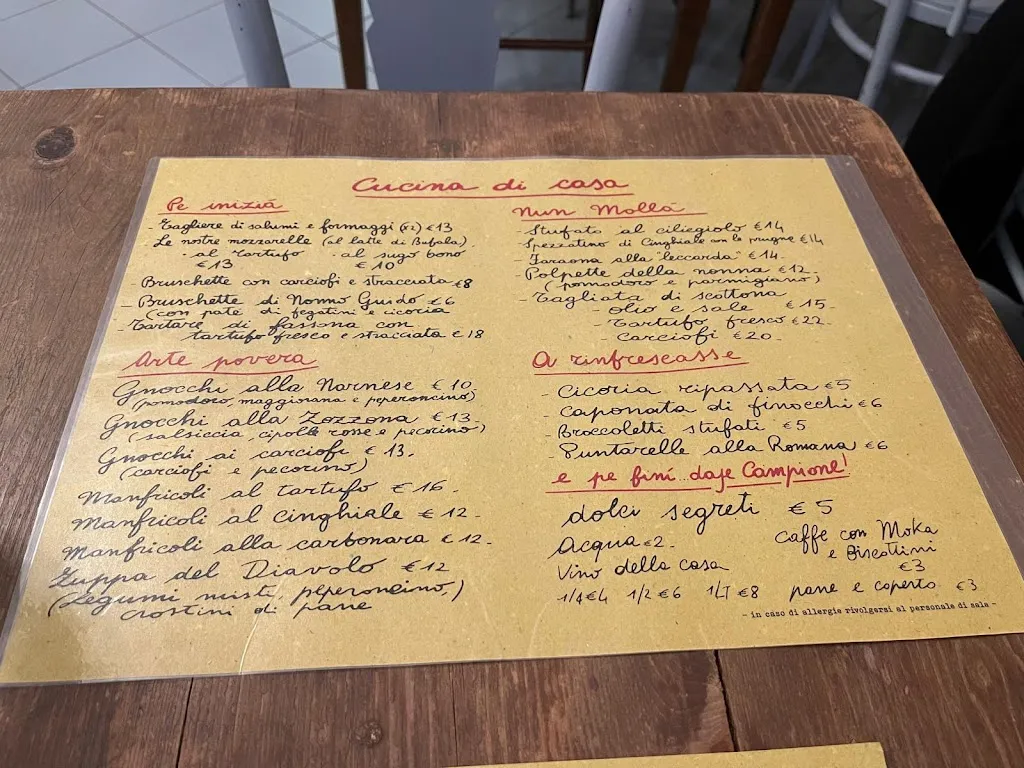 Cucina di casa
Pe inizià
- Tagliere di salumi e formaggi (x2) €13
Le nostre mozzarelle (al latte di Bufala).
· al tartufo · al sugo bono
€13 €10
- Bruschette con carciofi e stracciata €8
- Bruschette di Nonno Guido €6
(con paté di fegatini e cicoria
- Tartare di fassona con
tartufo fresco e stracciata €18
Arte povera
Gnocchi alla Narnese €10.
(pomodoro, maggiorana e peperoncino)
Gnocchi alla Zozzona €13.
(salsiccia, cipolle rosse e pecorino)
Gnocchi ai carciofi €13.
(carciofi e pecorino)
Manfricoli al tartufo €16.
Manfricoli al cinghiale €12.
Manfricoli alla carbonara €12.
Zuppa del Diavolo €12
(Legumi misti, peperoncino,)
crostini di pane
Nun Mollà
- Stufato al ciliegiolo €14
- Spezzatino di Cinghiale con le prugne €14
- Faraona alla "leccarda" €14.
- Polpette della nonna €12.
(pomodoro e parmigiano)
- Tagliata di scottona
- olio e sale €15.
- Tartufo fresco €22.
- carciofi €20.
A rinfrescasse
- Cicoria ripassata €5
- Caponata di finocchi €6
- Broccoletti stufati €5
- Puntarelle alla Romana €6
e pe finì... daje Campione!
dolci segreti €5
Acqua €2.
Vino della casa
1/4 €4 1/2 €6 1LT €8
Caffe con Moka
e Biscottini
€3
pane e coperto €3
- in caso di allergie rivolgersi al personale di sala -